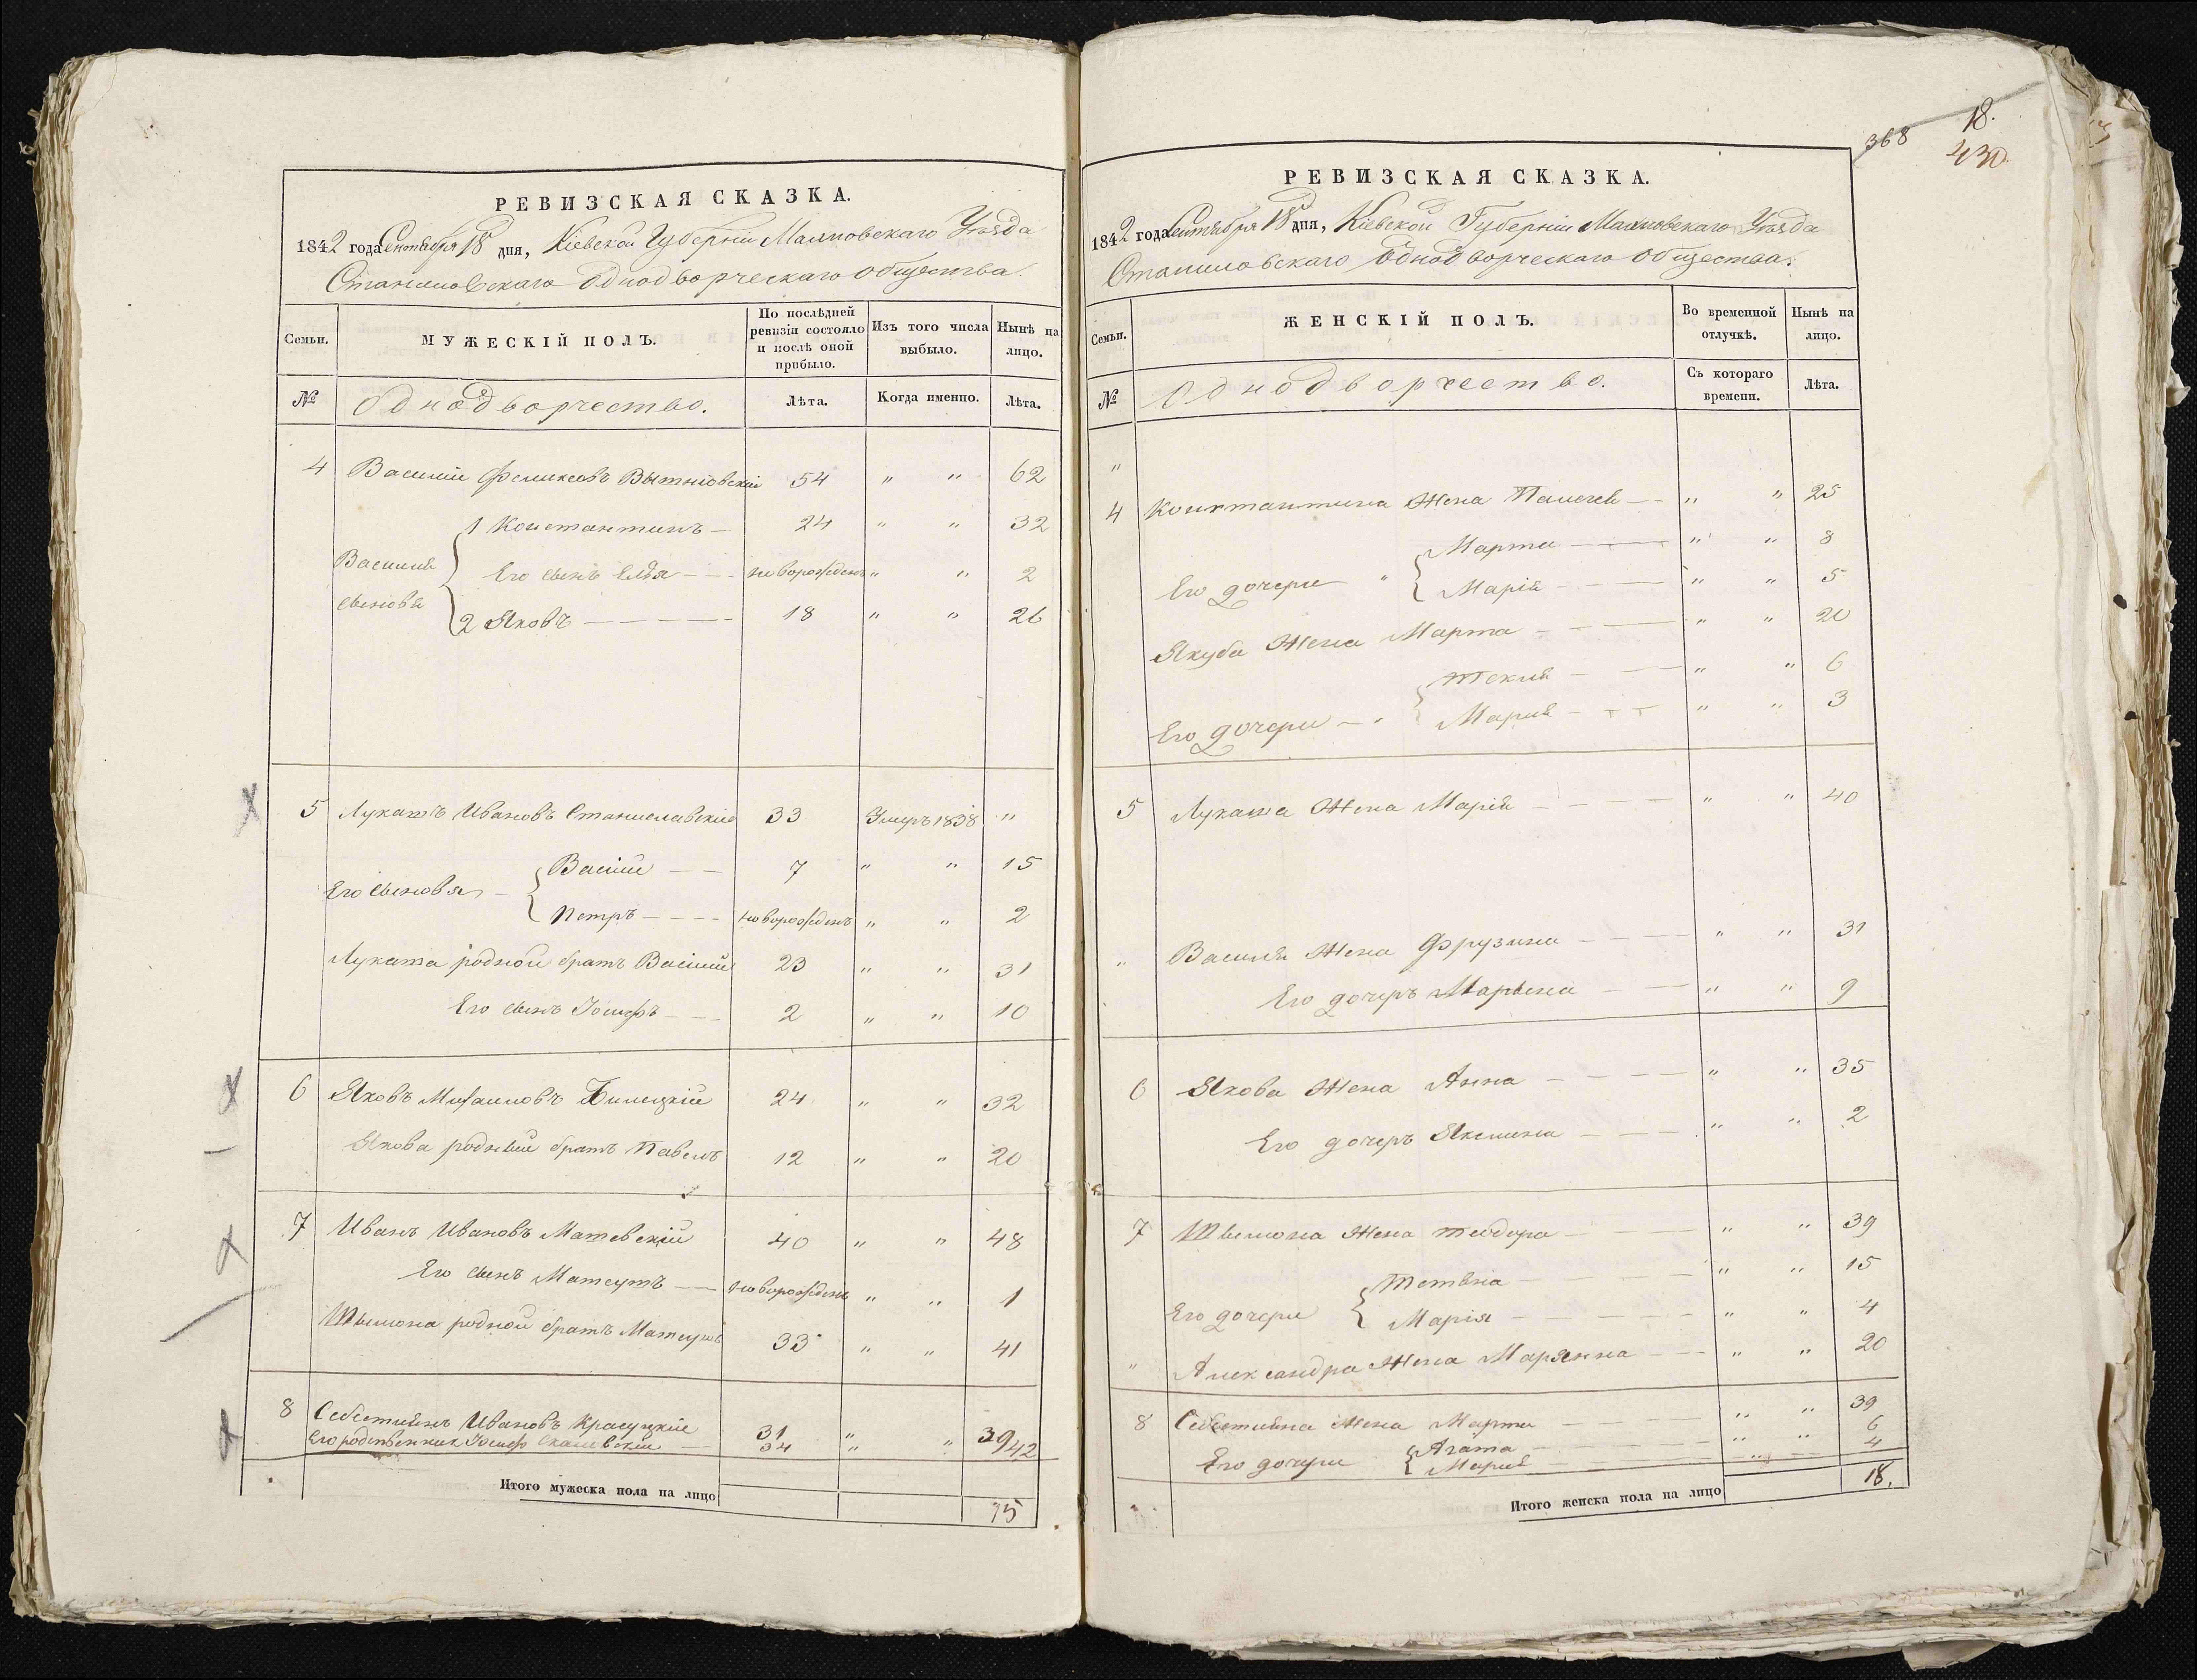 РЕВИЗСКАЯ СКАЗКА.
1842 года Сентября 18 дня, Кіевской Губерніи Махновскаго Уѣзда
Станиловскаго Однодворческаго Общества.
Семьи.
МУЖЕСКІЙ ПОЛЪ.
По послѣдней ревизіи состояло и послѣ оной прибыло.
Изъ того числа выбыло.
Нынѣ на лицо.
№
Однодворчество.
Лѣта.
Когда именно.
Лѣта.
4 Василий Феликсовъ 54 " " 62
1 Константинъ — 24 " " 32
Василия
Его сынъ Илья — — новорожденъ " " 2
сыновя
2 Яковъ — — — — — 18 " " 26
5 Лукашъ Ивановъ Станиславскій 33 Умеръ 1838 "
Васілій — — 7 " " 15
Его сыновя —
Петръ — — — — новорожденъ " " 2
Лукаша родной братъ Васілий 23 " " 31
Его сынъ Іосифъ — — 2 " " 10
6 Яковъ Михаиловъ Билецкій 24 " " 32
Якова родный братъ Павелъ 12 " " 20
7 Иванъ Ивановъ Матевскій 40 " " 48
Его сынъ Матеушъ — — новорожденъ " " 1
Шымона родной братъ Матеушъ 33 " " 41
8 Себестиянъ Ивановъ Красуцкіе 31 " 39
Его родственник Іосиф 34 " " 42
Итого мужеска пола на лицо
15
368
18.
430.
РЕВИЗСКАЯ СКАЗКА.
1842 года Сентября 18 дня, Кіевской Губерніи Махновскаго Уѣзда
Станиловскаго Однодворческаго Общества.
Семьи.
ЖЕНСКІЙ ПОЛЪ.
Во временной отлучкѣ.
Нынѣ на лицо.
№
Однодворчество.
Съ котораго времени.
Лѣта.
"
4 Константина Жена — — " " 25
Марта — — " " 8
Его дочери "
Марія — — — " " 5
Якуба Жена Марта — — — " " 20
Текля — — " " 6
Его дочери — "
Марія — — — " " 3
5 Лукаша Жена Марія — — — — " " 40
" Василя Жена Фрузина — — — " " 31
Его дочеръ Марьена — — " " 9
6 Якова Жена Анна — — — — " " 35
Его дочеръ Якилина — — — " " 2
7 Шымона Жена Теодора — — — " " 39
Тетяна — — — — " " 15
Его дочери
Марія — — — — — " " 4
" Александра Жена Марянна — — " " 20
8 Себестияна Жена Марта — — — " " 39
Агата — — — — " " 6
Его дочери
Марія — — — — " 4
Итого женска пола на лицо
18.